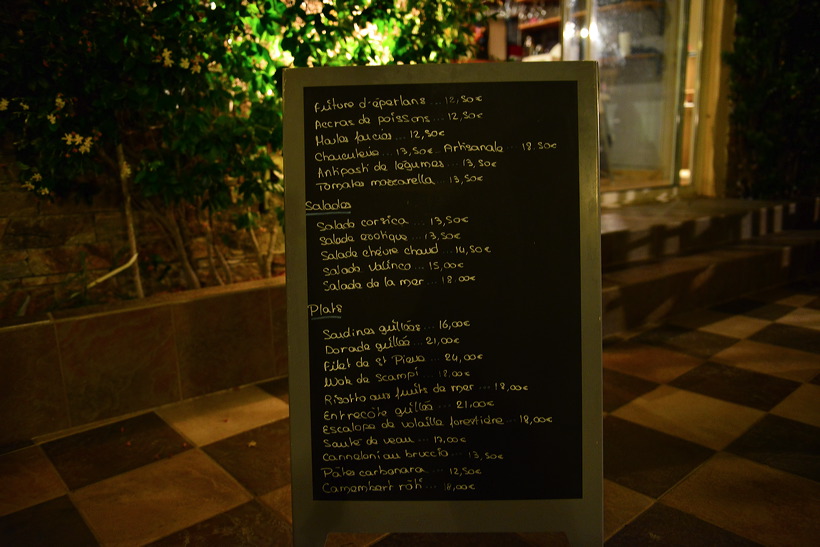 Friture d'éperlans ... 12,50€
Accras de poissons ... 12,50€
Moules farcies ... 12,50€
Charcuterie ... 13,50€ Artisanale ... 18.50€
Antipasti de légumes ... 13,50€
Tomates mozzarella ... 13,50€
Salades
Salade corsica ... 13,50€
Salade exotique ... 13,50€
Salade chèvre chaud ... 14,50€
Salade Valinco ... 15,00€
Salade de la mer ... 18.00€
Plats
Sardines grillées ... 16,00€
Dorade grillée ... 21,00€
Filet de St Pierre ... 24,00€
Wok de Scampi ... 18.00€
Risotto aux fruits de mer ... 18,00€
Entrecôte grillée ... 21.00€
Escalope de volaille forestière ... 18,00€
Sauté de veau ... 17,00€
Canneloni au bruccio ... 13,50€
Pâtes carbonara ... 12,50€
Camembert rôti ...